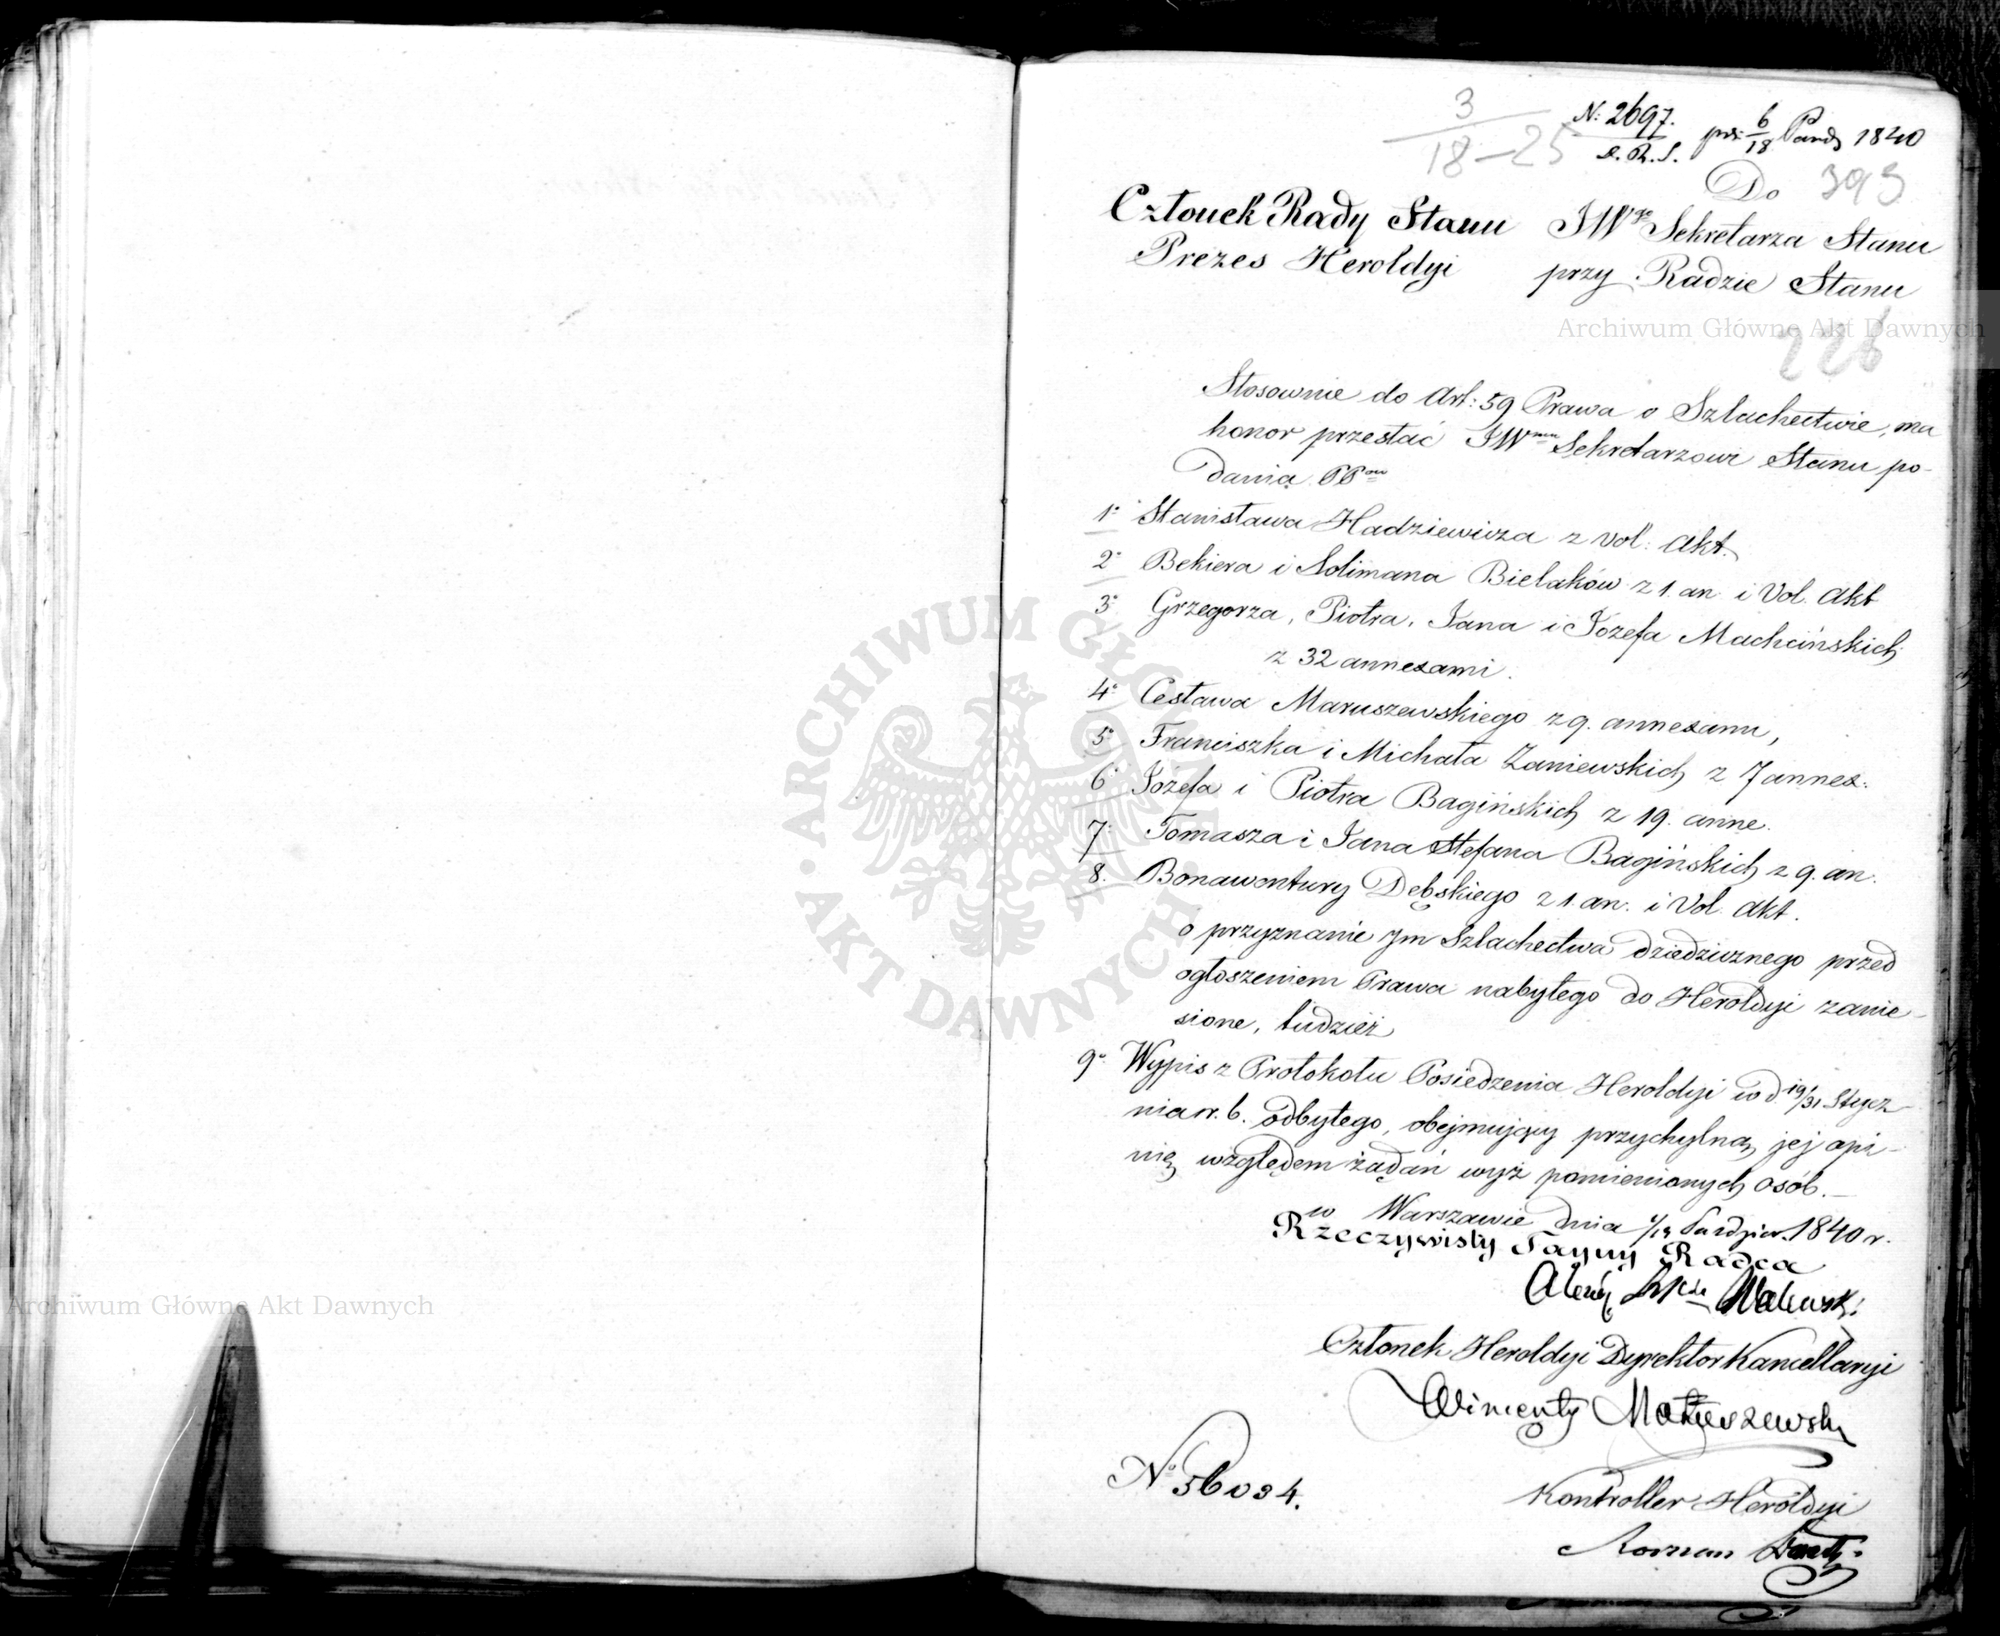 3
18-25
N: 2697.
D. R. S.
6/18 Paźdz 1840
Do 393
Członek Rady Stanu
Prezes Heroldyi
JWgo Sekretarza Stanu
przy Radzie Stanu
226
Stosownie do Art: 59 Prawa o Szlachectwie, ma
honor przesłać JWmu Sekretarzowi Stanu po-
dania PPow
1o Stanisława Hadziewicza z vol: Akt.
2o Bekiera i Solimana Bielaków z 1. an. i Vol. Akt
3o Grzegorza, Piotra, Jana i Józefa Machcińskich
z 32 annexami.
4o Cesława Maruszewskiego z 9. annexami,
5o Franciszka i Michała Zaniewskich z 7 annex:
6o Józefa i Piotra Bagińskich z 19. anne.
7o Tomasza i Jana Stefana Bagińskich z 9. an.
8. Bonawentury Dębskiego z 1. an. i Vol. Akt.
o przyznanie ym Szlachectwa dziedzicznego przed
ogłoszeniem Prawa nabytego do Heroldyi zanie-
sione, tudzież
9o Wypis z Protokołu Posiedzenia Heroldyi w d. 19/31 Stycz-
nia r. b. odbytego, obejmujący przychylną jej opi-
nię względem żądań wyż pomienionych osób.—
w Warszawie dnia 1840 r.
Rzeczywisty Tayny Radca
Walewski
Członek Heroldyi Dyrektor Kancellaryi
Wincenty Matuszewski
No 56034.
Kontroller Heroldyi
Archiwum Główne Akt Dawnych
Archiwum Główne Akt Dawnych
ARCHIWUM GŁÓWNE AKT DAWNYCH